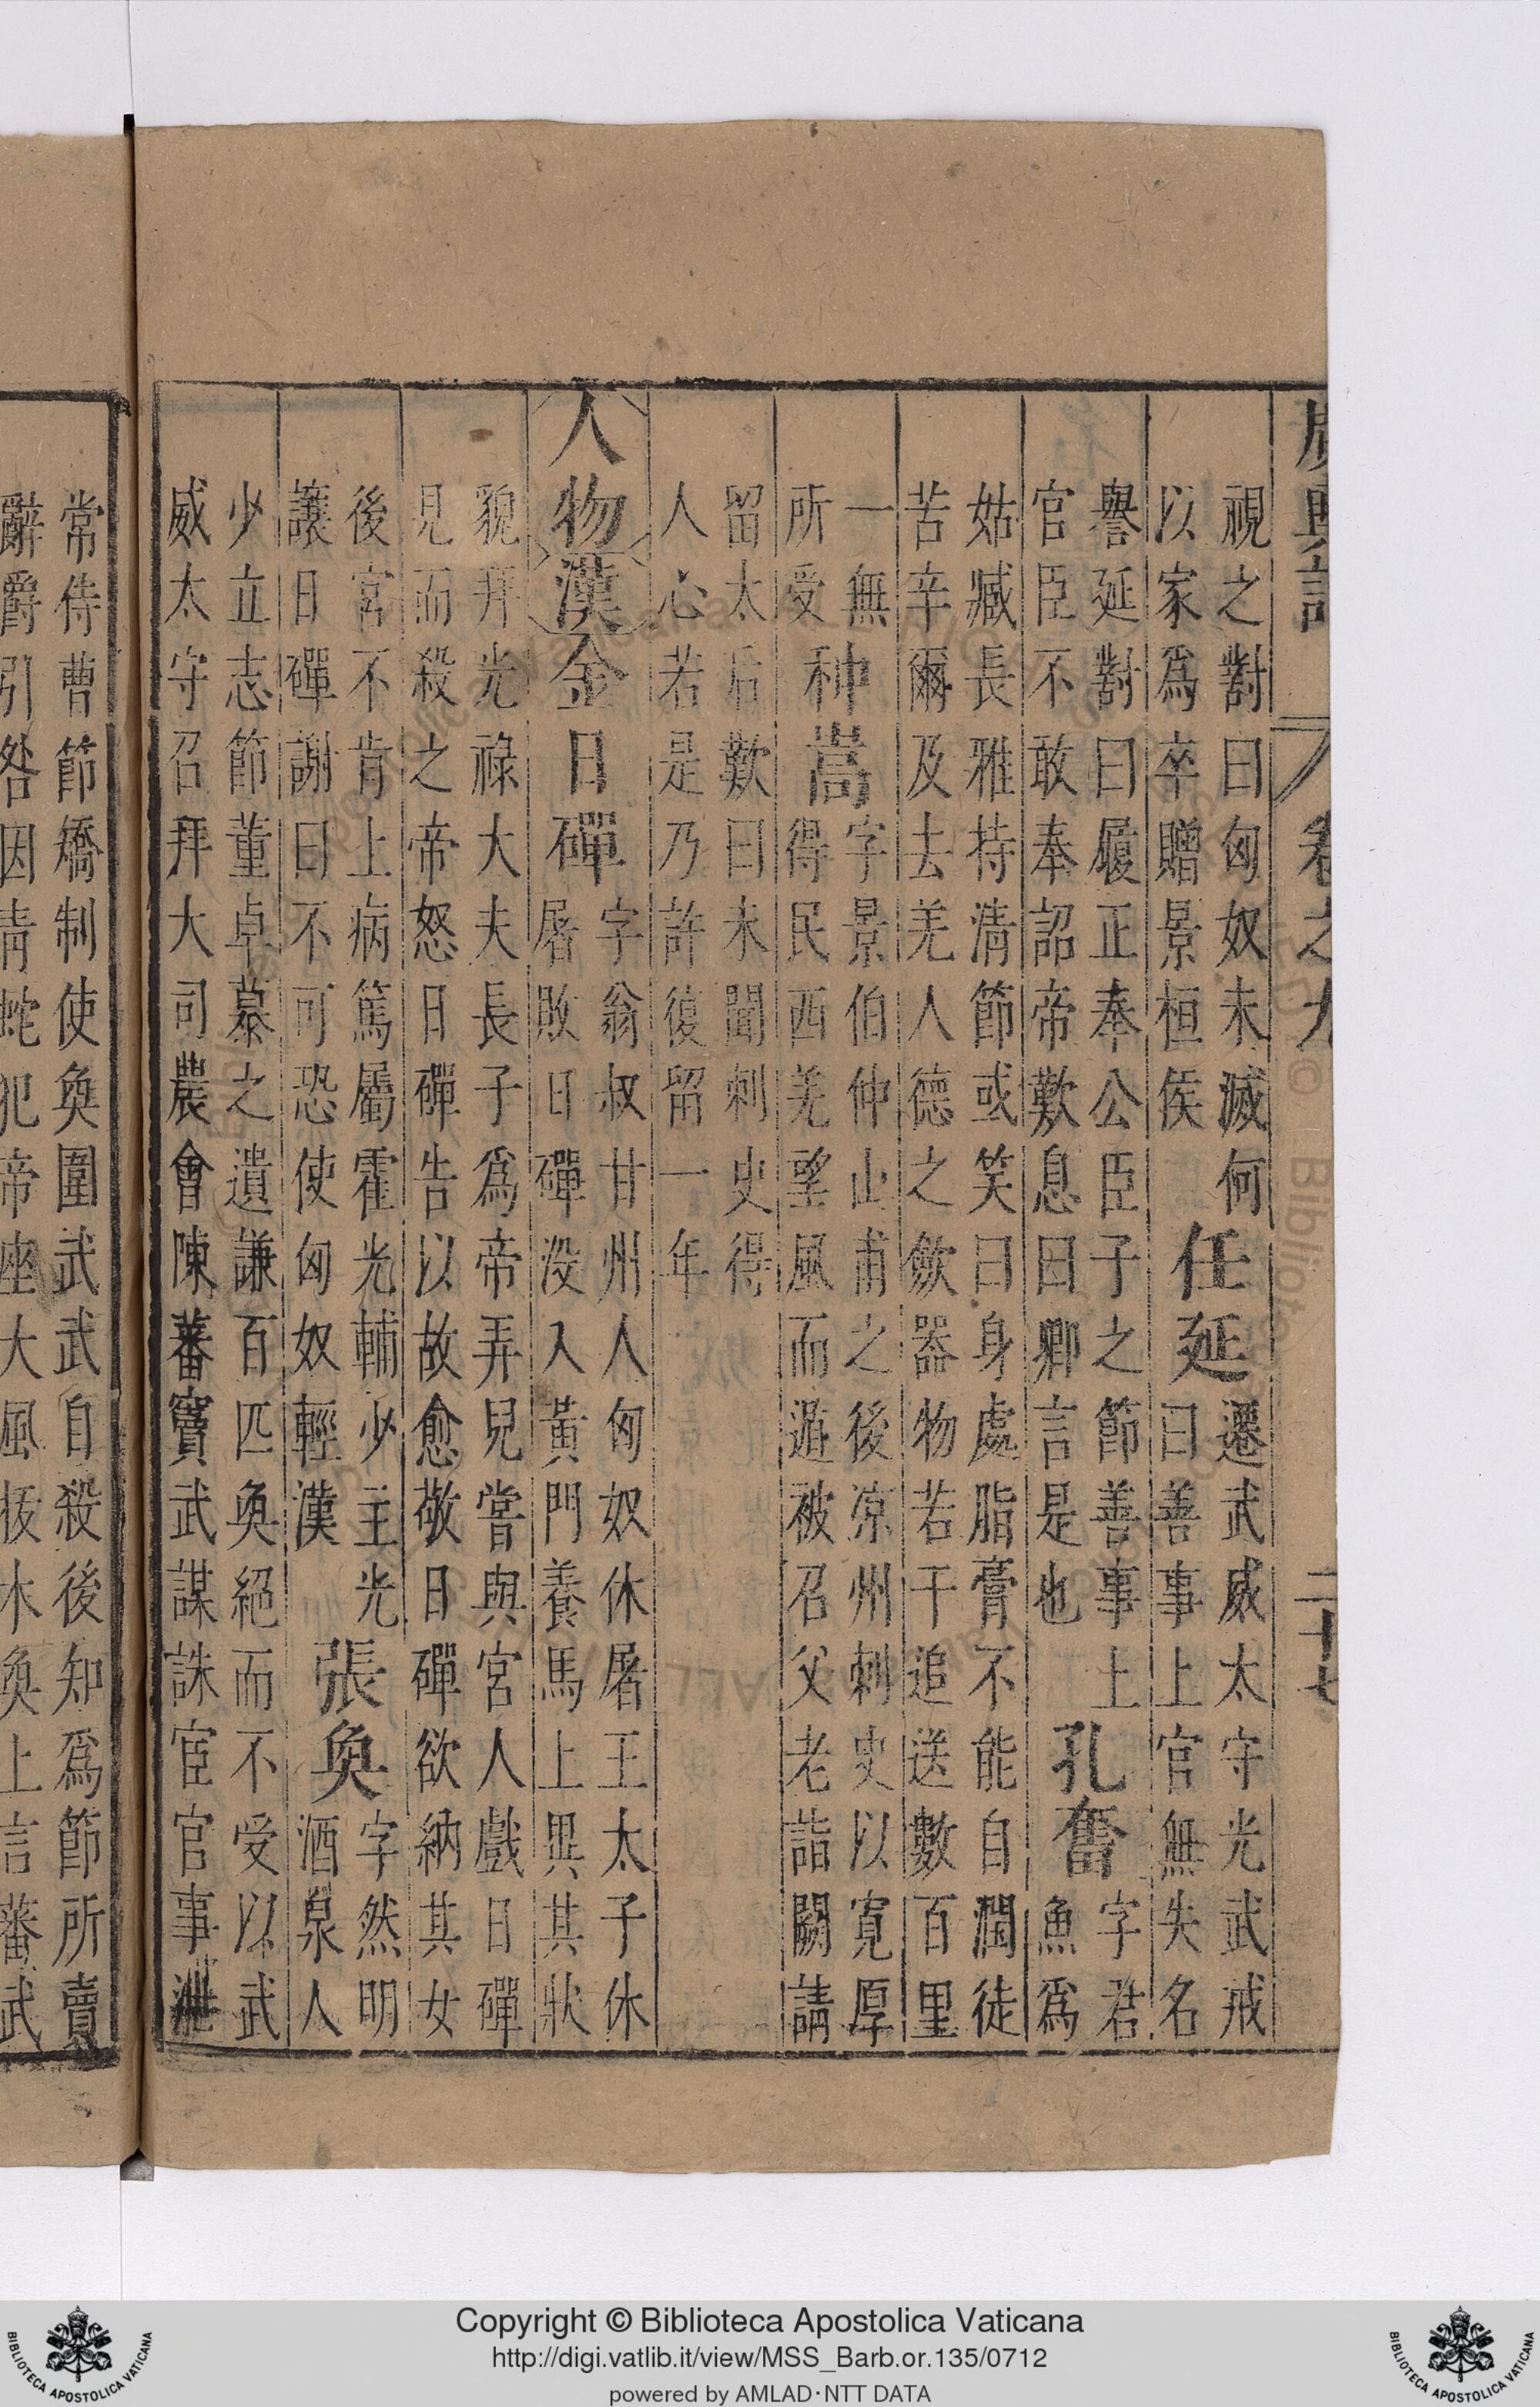 廣輿記 卷之九 二十七
視之對曰匈奴未滅何
以家爲卒贈景桓侯
任延
遷武威太守光武戒
曰善事上官無失名
譽延對曰履正奉公臣子之節善事上
官臣不敢奉詔帝歎息曰卿言是也
孔奮
字君
魚爲
姑臧長雅持清節或笑曰身處脂膏不能自潤徒
苦辛爾及去羌人德之歛器物若干追送數百里
一無
所受
种暠
字景伯仲山甫之後凉州刺史以寬厚
得民西羌望風而遁被召父老詣闕請
留太后歎曰未聞刺史得
人心若是乃許復留一年
人物漢金日磾
字翁叔甘州人匈奴休屠王太子休
屠敗日磾没入黃門養馬上異其狀
貌拜光祿大夫長子爲帝弄兒嘗與宮人戲日磾
見而殺之帝怒日磾告以故愈敬日磾欲納其女
後宮不肯上病篤屬霍光輔少主光
讓日磾謝曰不可恐使匈奴輕漢
張奐
字然明
酒泉人
少立志節董卓慕之遺縑百匹奐絕而不受以武
威太守召拜大司農會陳蕃竇武謀誅宦官事泄
常侍曹節矯制使奐圍武武自殺後知爲節所賣
辭爵引咎因青蛇犯帝座大風拔木奐上言蕃武
Copyright © Biblioteca Apostolica Vaticana
http://digi.vatlib.it/view/MSS_Barb.or.135/0712
powered by AMLAD·NTT DATA
BIBLIOTECA APOSTOLICA VATICANA
BIBLIOTECA APOSTOLICA VATICANA